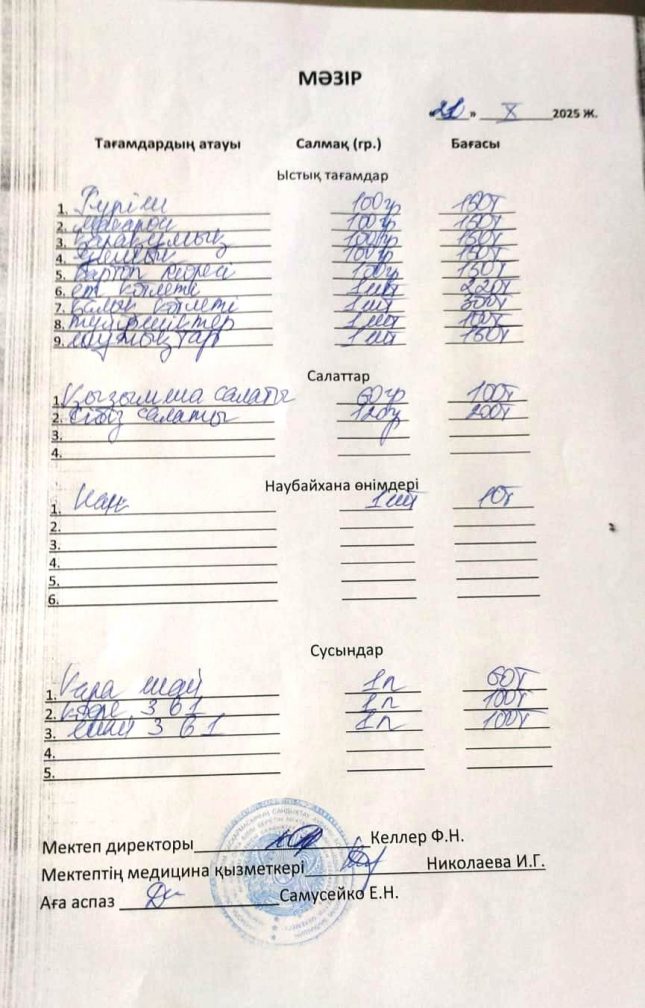 МӘЗІР
«21» X 2025 Ж.
Тағамдардың атауы Салмақ (гр.) Бағасы
Ыстық тағамдар
1. Күріш 100гр 150т
2. 100гр 150т
3. Қарақұмық 100гр 150т
4. 100гр 150т
5. Картоп 100гр 150т
6. ет котлеті 1шт 220т
7. балық котлеті 1шт 300т
8. 1шт
9. шұжықтар 1шт 150т
Салаттар
1. Қызылша салаты 60гр 100т
2. Сәбіз салаты 120гр 200т
3.
4.
Наубайхана өнімдері
1. Нан 1шт 10т
2.
3.
4.
5.
6.
Сусындар
1. Қара шай 1п 60т
2. Кофе 3 в 1 1п 100т
3. 3 в 1 1п 100т
4.
5.
Мектеп директоры Келлер Ф.Н.
Мектептің медицина қызметкері Николаева И.Г.
Аға аспаз Самусейко Е.Н.